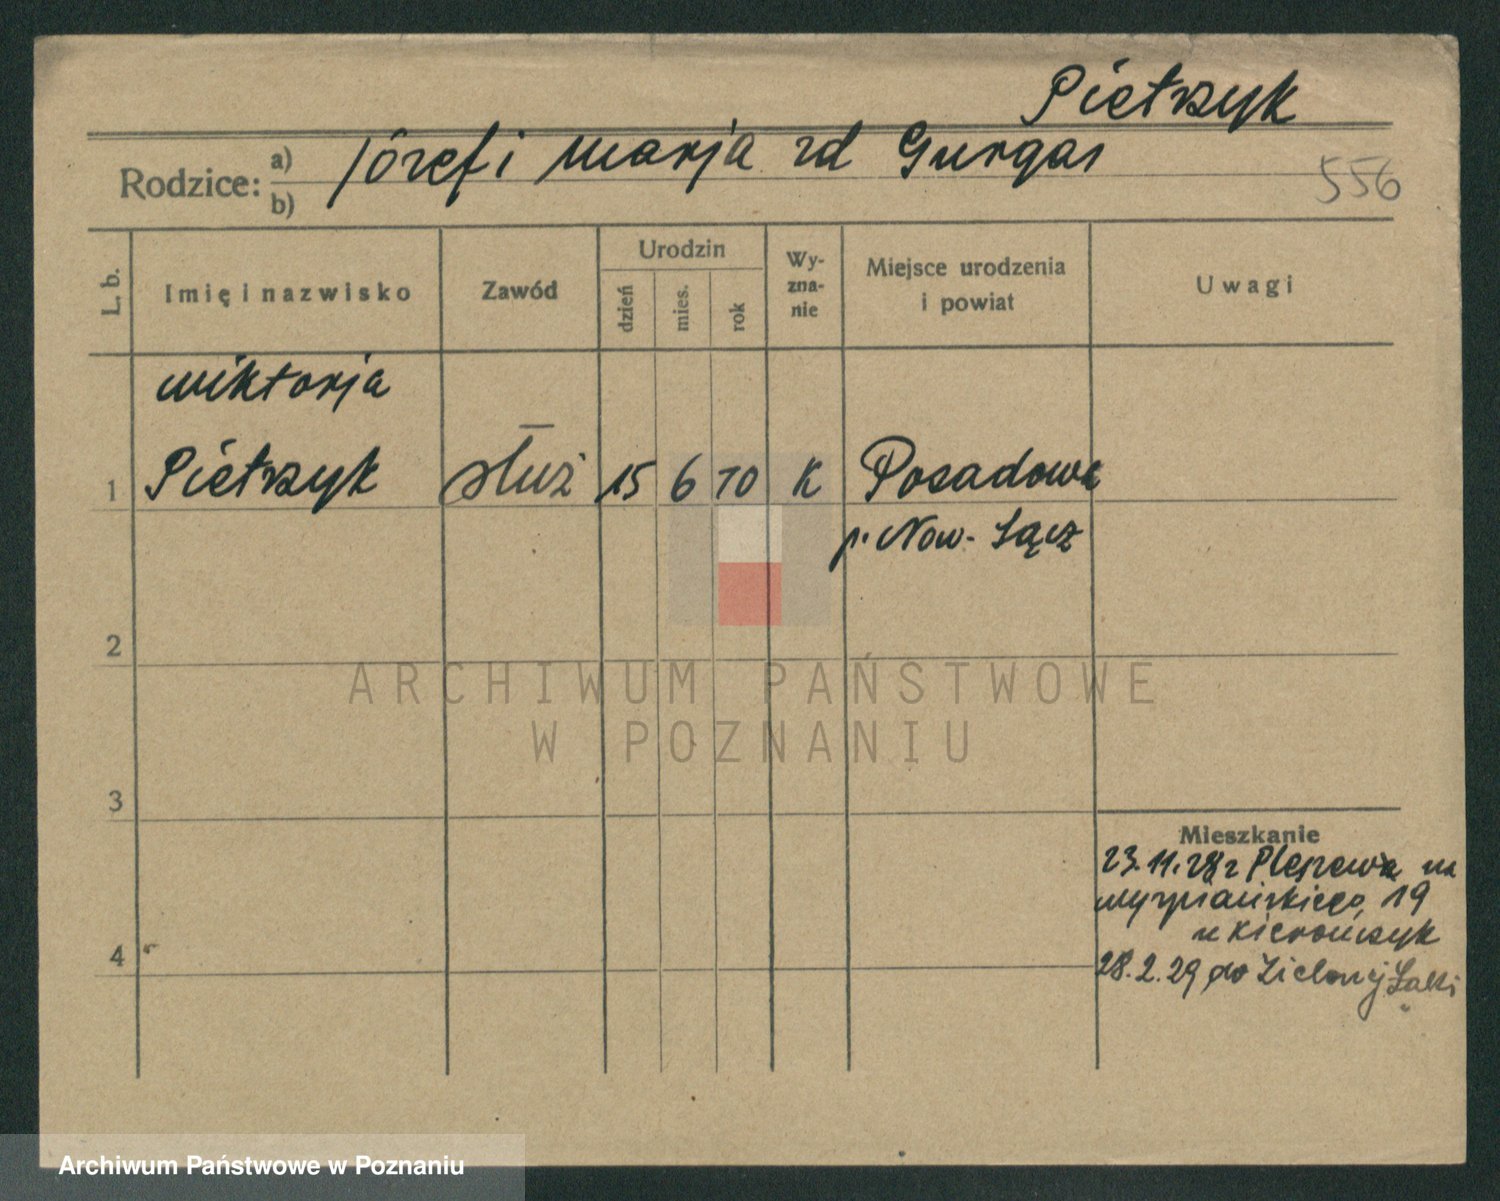 Pietrzyk
Rodzice: a) Józef i Marja zd Gurgas
b)
556
L. b.
Imię i nazwisko
Zawód
Urodzin
dzień
mies.
rok
Wy-
zna-
nie
Miejsce urodzenia
i powiat
Uwagi
Wiktorja
1 Pietrzyk służ 15 6 10 K Posadowa
p. Now. Sącz
2
3
4
Mieszkanie
23.11.28 z Pleszewa na
Wyspiańskiego 19
u Kierończyk
28.2.29 do Zielonej Łąki
ARCHIWUM PAŃSTWOWE
W POZNANIU
Archiwum Państwowe w Poznaniu